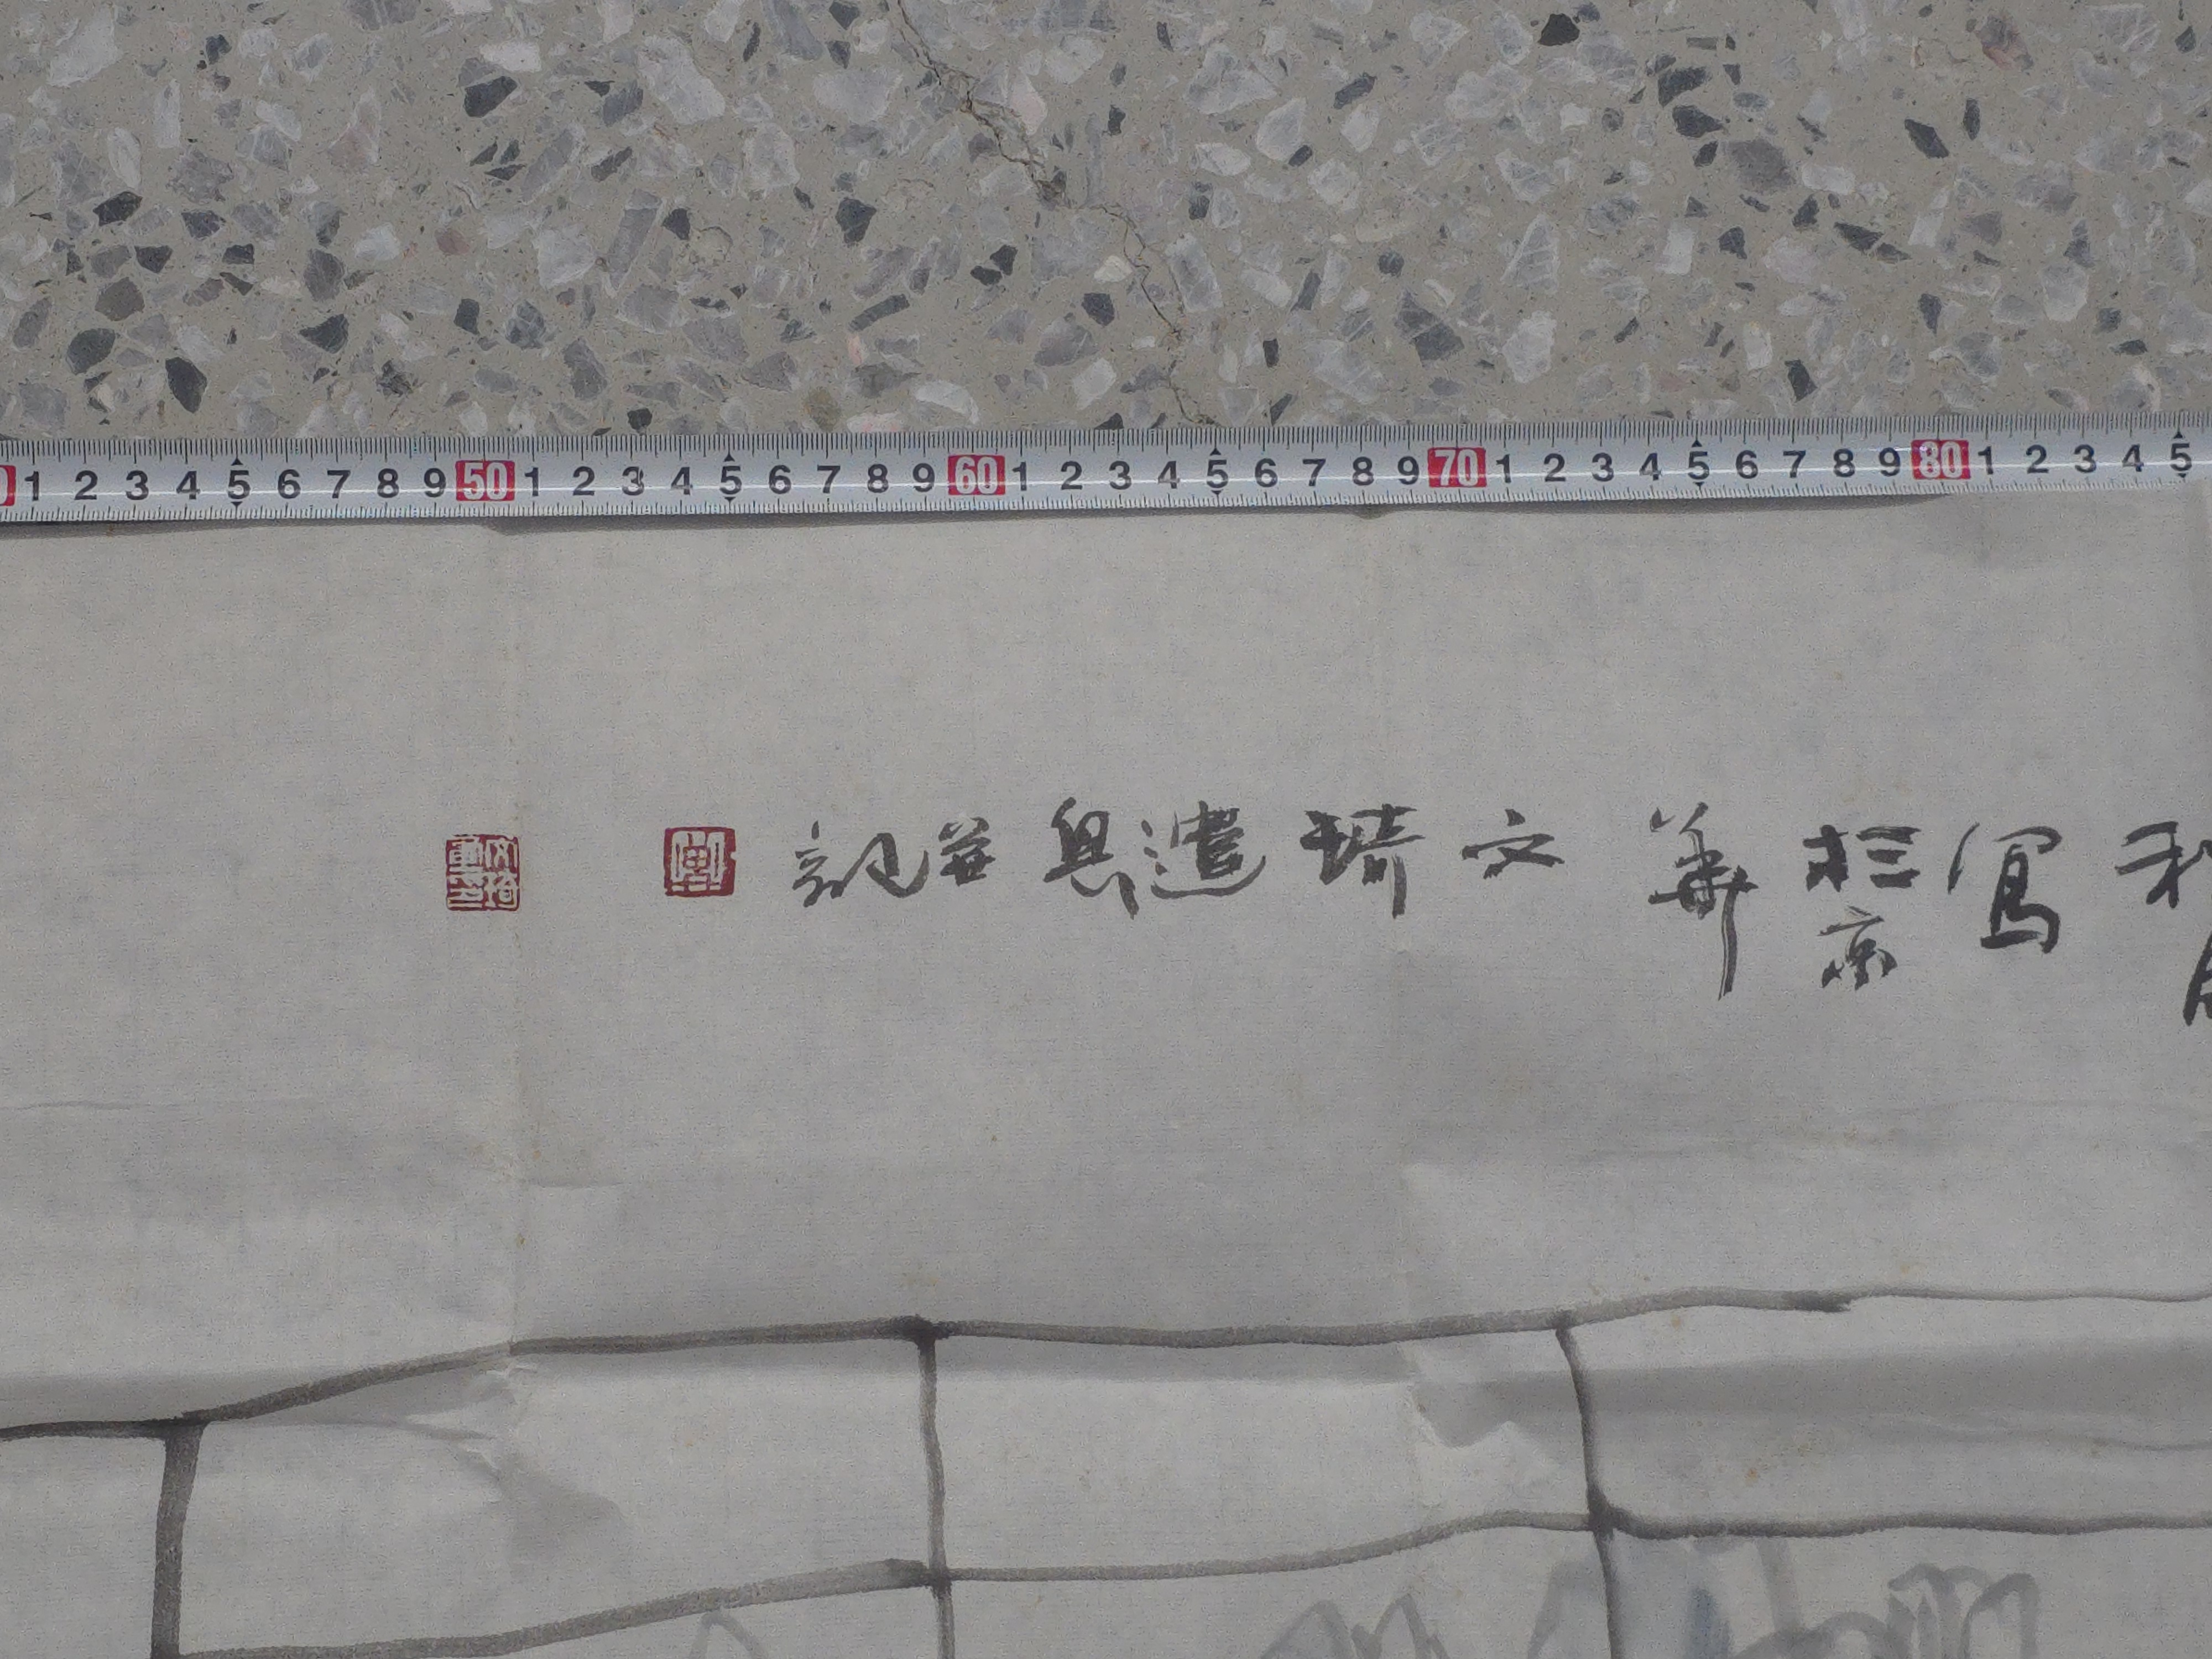 1 2 3 4 5 6 7 8 9 50 1 2 3 4 5 6 7 8 9 60 1 2 3 4 5 6 7 8 9 70 1 2 3 4 5 6 7 8 9 80 1 2 3 4 5
寫於京華文琦遣興並記